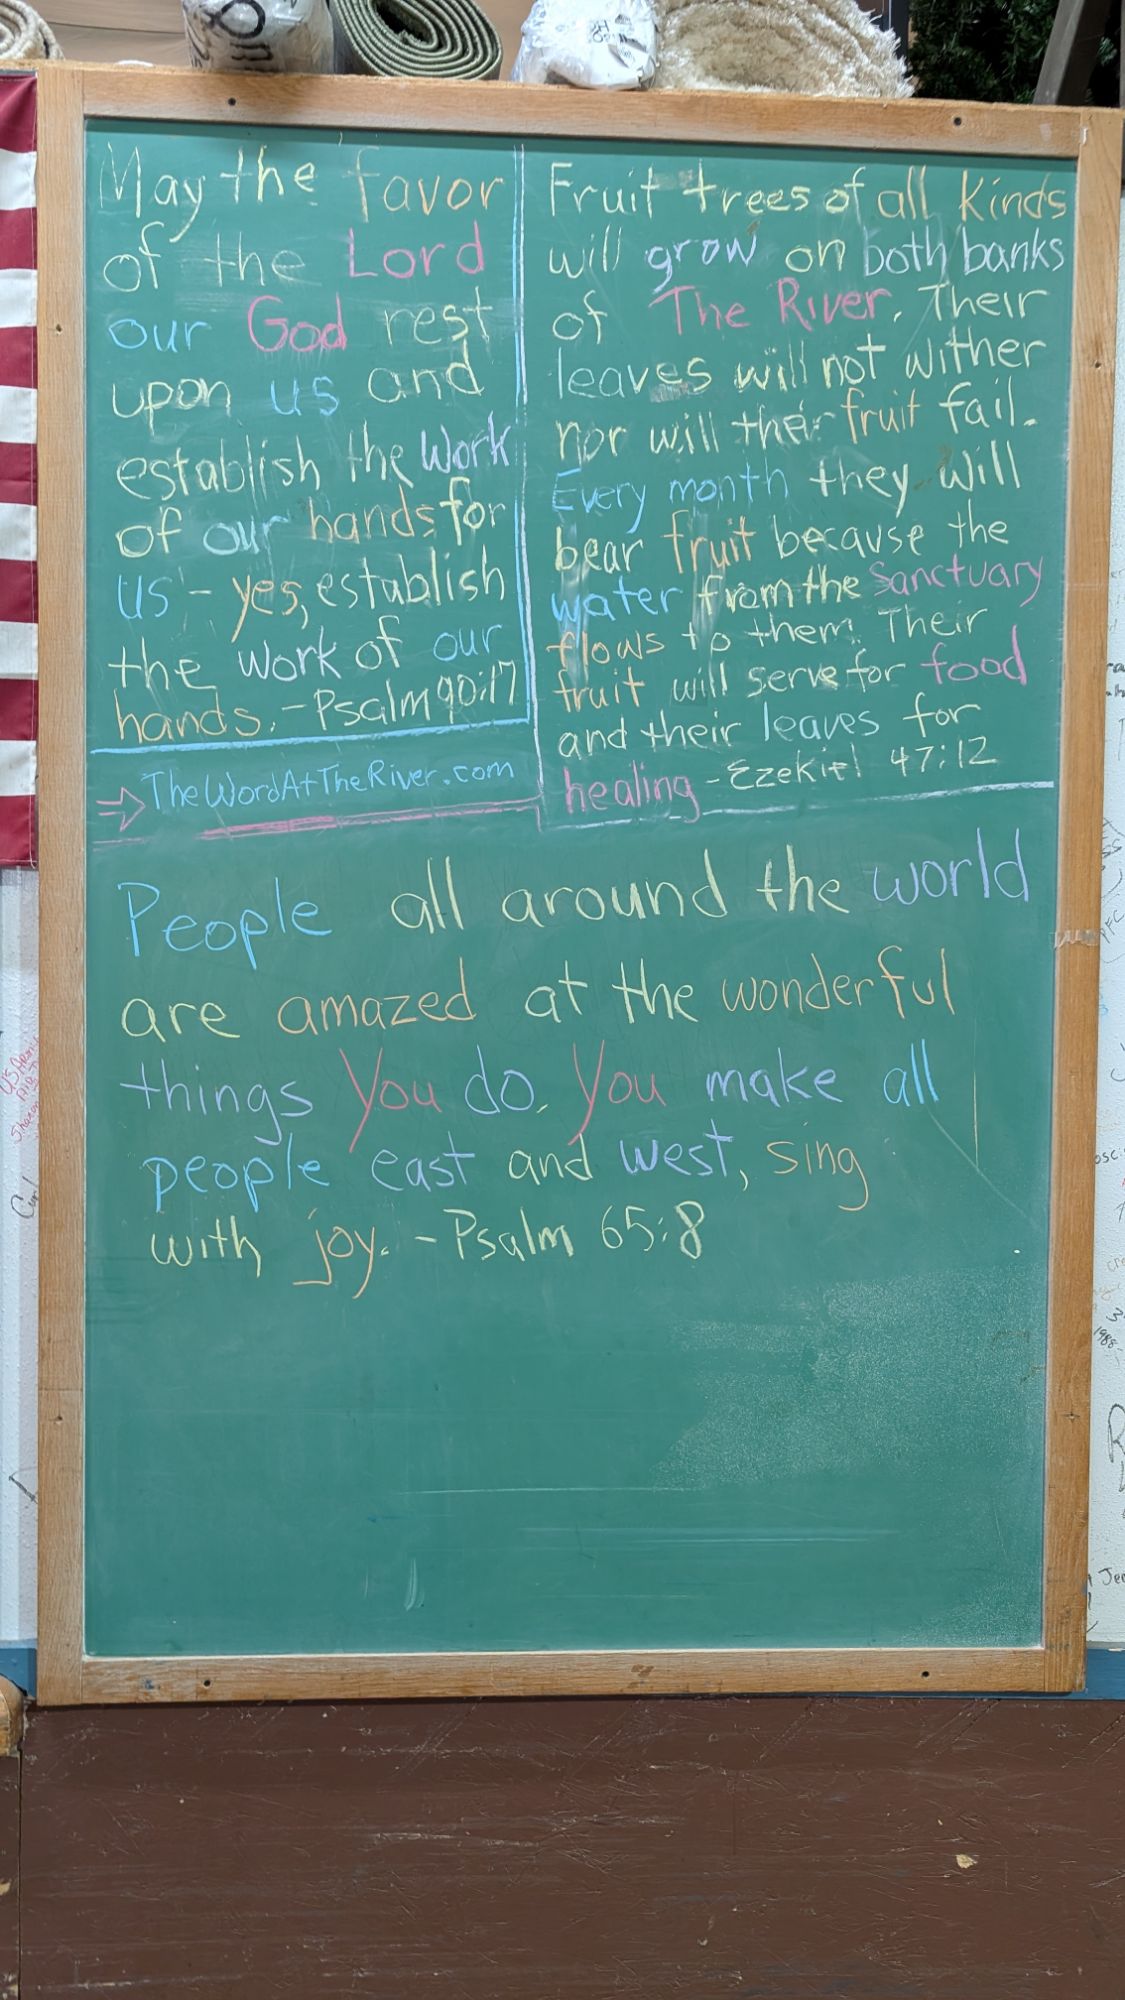 May the favor
of the Lord
our God rest
upon us and
establish the work
of our hands for
us - yes, establish
the work of our
hands. - Psalm 90:17
TheWordAtTheRiver.com
Fruit trees of all kinds
will grow on both banks
of The River. Their
leaves will not wither
nor will their fruit fail.
Every month they will
bear fruit because the
water from the Sanctuary
flows to them. Their
fruit will serve for food
and their leaves for
healing - Ezekiel 47:12
People all around the world
are amazed at the wonderful
things You do. You make all
people east and west, sing
with joy. - Psalm 65:8